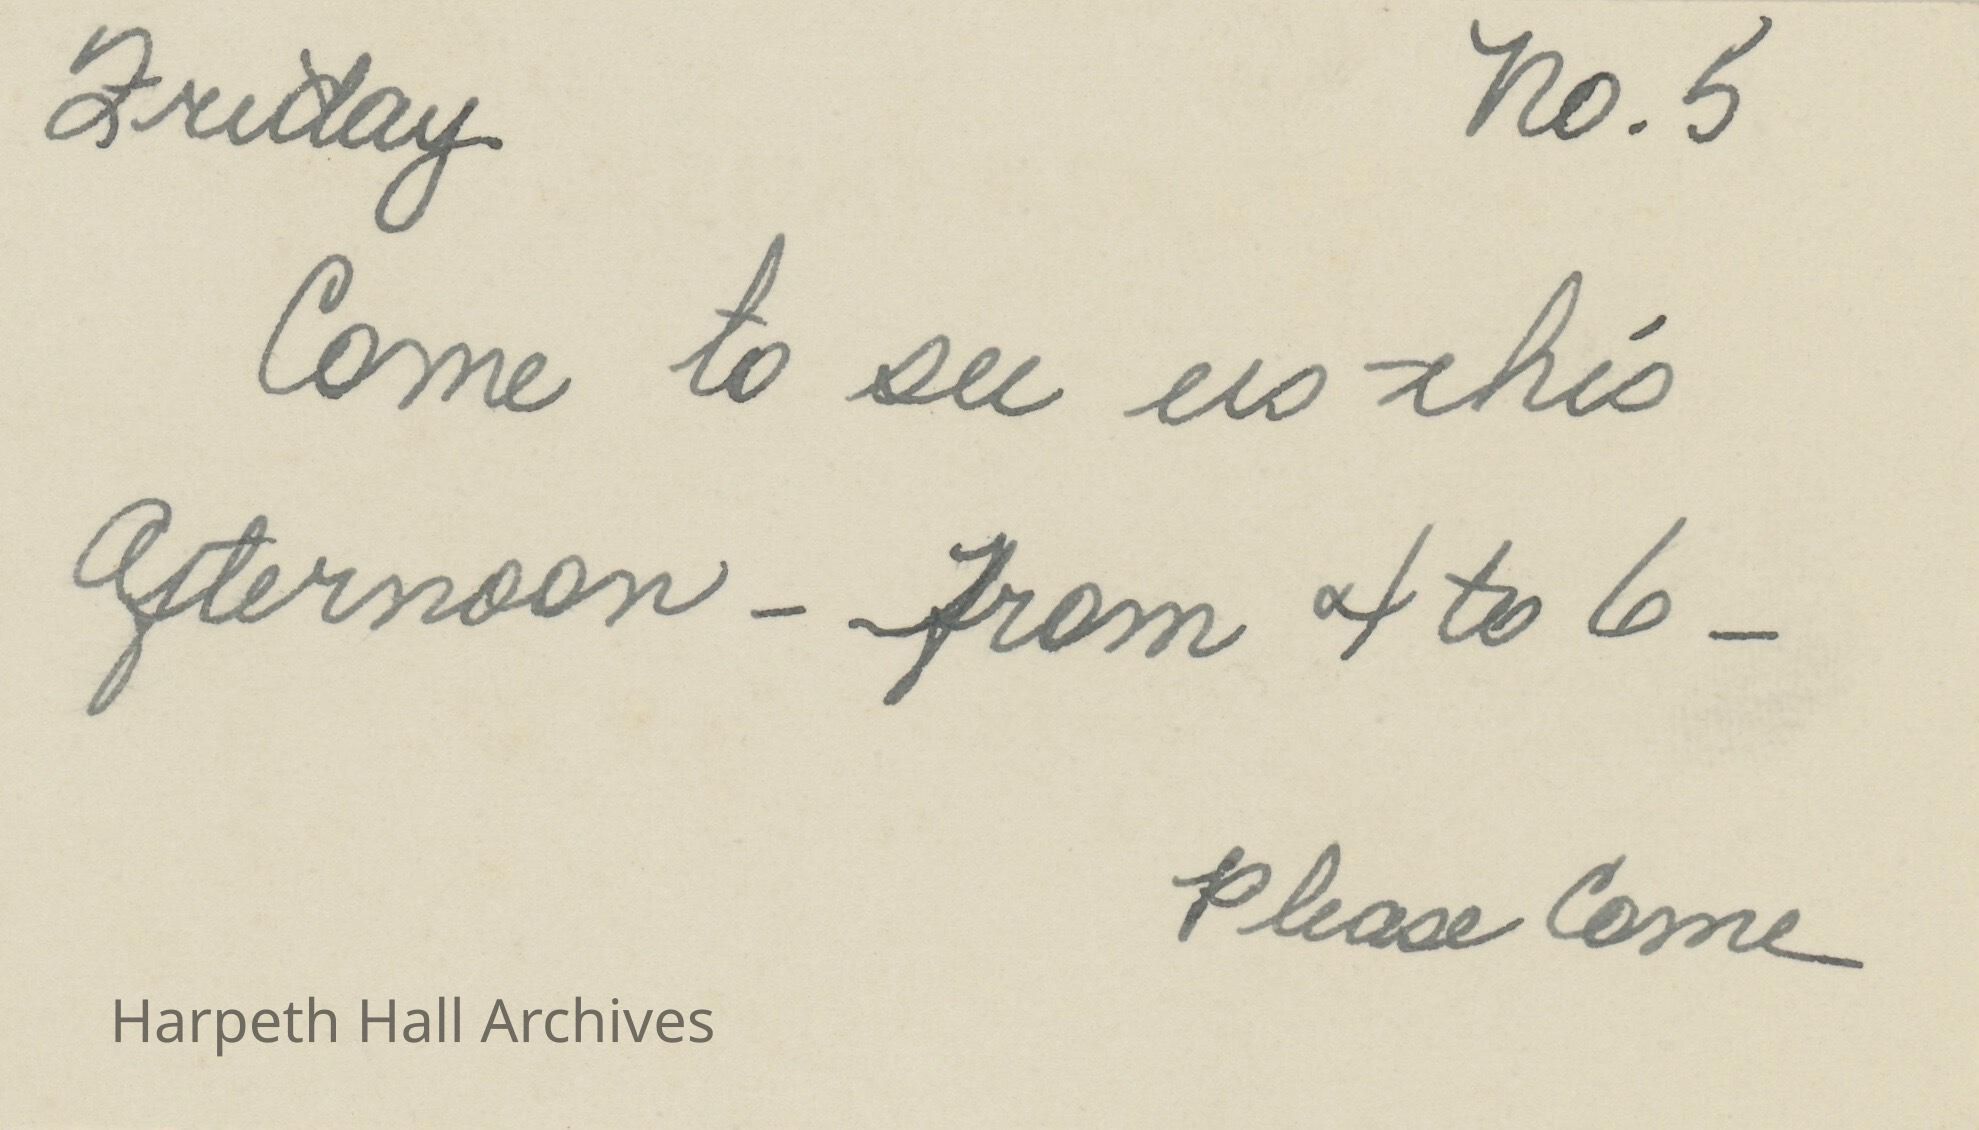 Friday No. 5
Come to see us this
Afternoon - from 4 to 6 -
Please Come
Harpeth Hall Archives